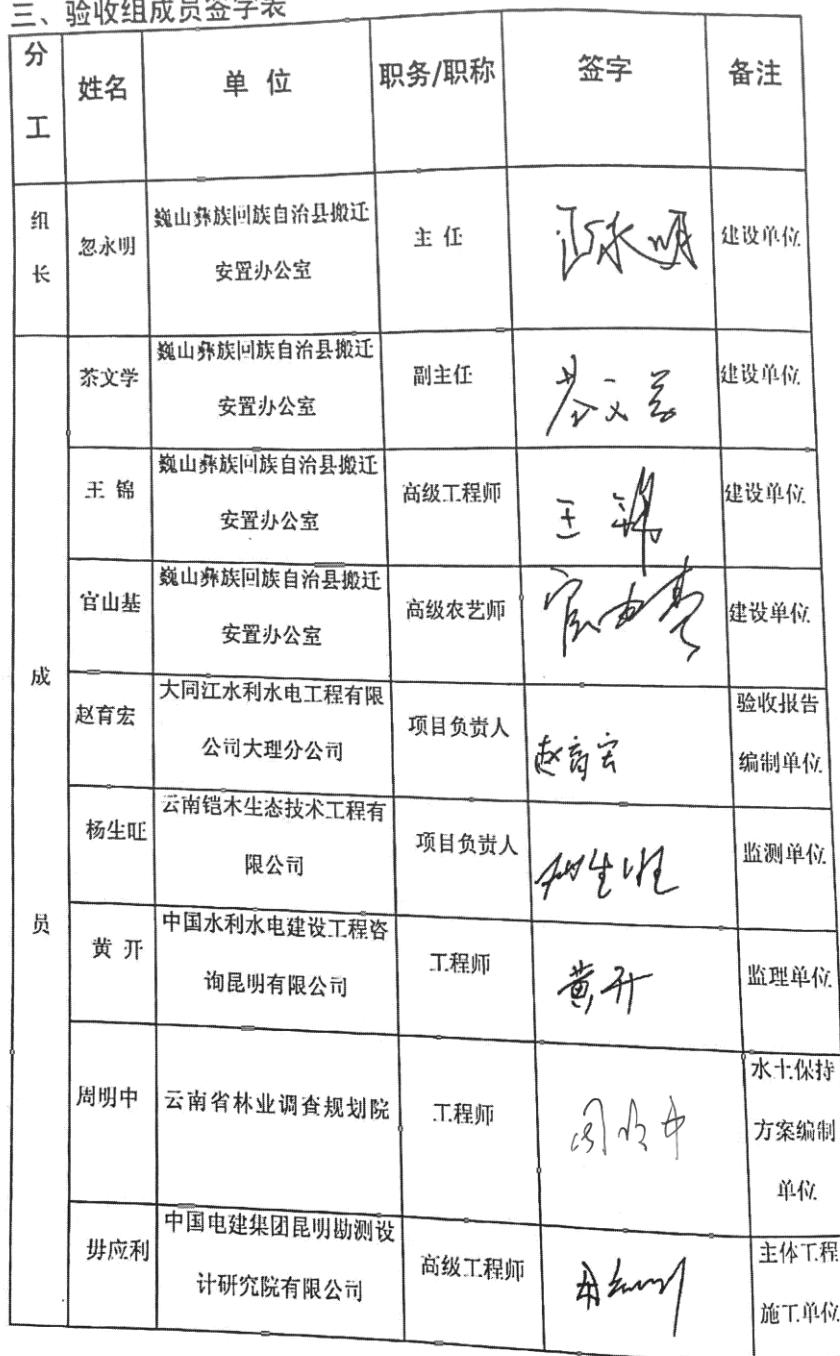 三、验收组成员签字表
分工 姓名 单 位 职务/职称 签字 备注
组长 忽永明 巍山彝族回族自治县搬迁安置办公室 主 任 忽永明 建设单位
成员
茶文学 巍山彝族回族自治县搬迁安置办公室 副主任 茶文学 建设单位
王 锦 巍山彝族回族自治县搬迁安置办公室 高级工程师 王锦 建设单位
官山基 巍山彝族回族自治县搬迁安置办公室 高级农艺师 官山基 建设单位
赵育宏 大同江水利水电工程有限公司大理分公司 项目负责人 赵育宏 验收报告编制单位
杨生旺 云南铠木生态技术工程有限公司 项目负责人 杨生旺 监测单位
黄 开 中国水利水电建设工程咨询昆明有限公司 工程师 黄开 监理单位
周明中 云南省林业调查规划院 工程师 周明中 水土保持方案编制单位
毋应利 中国电建集团昆明勘测设计研究院有限公司 高级工程师 主体工程施工单位